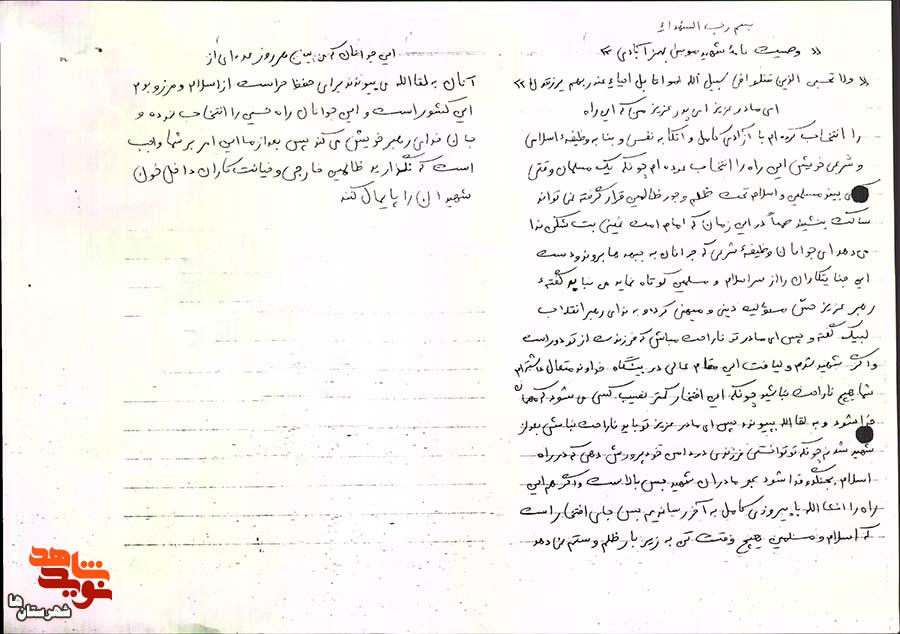 بسم رب الشهداء
« وصیت نامهٔ شهید موسی بهزآبادی »
« ولا تحسبن الذین قتلوا فی سبیل الله امواتا بل احیاء عند ربهم یرزقون »
ای مادر عزیز ای پدر عزیز من که این راه
را انتخاب کرده ام با آزادی کامل و اتکا به نفس و بنا به وظیفهٔ اسلامی
و شرعی خویش این راه را انتخاب نموده ام چونکه یک مسلمان وقتی
می بیند مسلمین و اسلام تحت ظلم و جور ظالمین قرار گرفته نمی تواند
ساکت بنشیند در این زمان که امام امت خمینی بت شکن ندا
می دهد ای جوانان وظیفهٔ شرعی که جوانان به جبهه ها بروند و دست
این جنایتکاران را از سر اسلام و مسلمین کوتاه نماید می باید گفتهٔ
رهبر عزیز حس مسؤلیت دینی و میهنی کرده و به ندای رهبر انقلاب
لبیک گفته و پس ای مادر تو ناراحت مباش که فرزندت از تو دور است
و اگر شهید شدم و لیاقت این مقام عالی در پیشگاه خداوند متعال داشته ام
شما هیچ ناراحت نباشید چونکه این افتخار کمتر نصیب کسی می شود که مهمان
خدا شود و به لقا الله بپیوندد پس ای مادر عزیز تو باید ناراحت نباشی بعد از
شهید شدنم چونکه تو توانستی فرزندی در دامن خود پرورش دهی که در راه
اسلام بجنگد و فدا شود اجر مادران شهید بس بالاست و اگر هم این
راه را انشاالله با پیروزی کامل به آخر رسانیدیم بس جای افتخار است
که اسلام و مسلمین هیچ وقت تن به زیر بار ظلم و ستم نمی دهد
این جوانان که می بینی هر روز عده ای از
آنان به لقا الله می پیوندند برای حفظ حراست از اسلام و مرز و بوم
این کشور است و این جوانان راه حسین را انتخاب نموده و
جان فدای رهبر خویش می کند پس بعد از ما این امر بر شما واجب
است که نگذارید ظالمین خارجی و خیانت کاران داخل خون
شهیدان را پایمال کنند
نوید شاهد
شهرستان ها